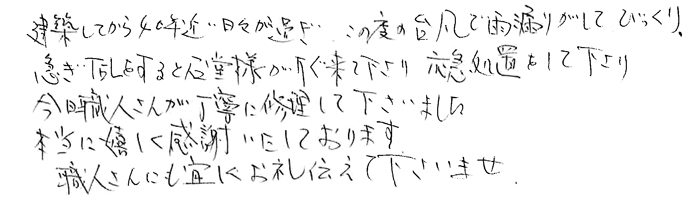 建築してから40年近い日々が過ぎ この度の台風で雨漏りがして びっくり、
急ぎTELをすると 様がすぐ来て下さり 応急処置をして下さり
今日職人さんが丁寧に修理して下さいました
本当に嬉しく感謝いたしております
職人さんにも宜しくお礼伝えて下さいませ.